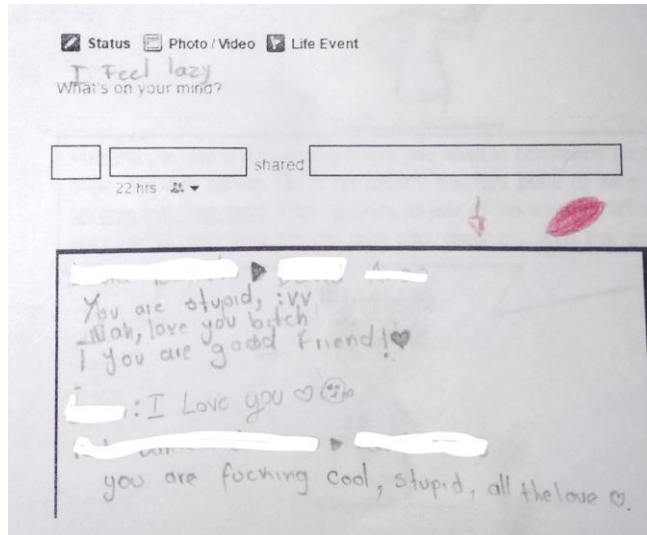 Status Photo / Video Life Event
I Feel lazy
What's on your mind?
shared
22 hrs
You are stupid, :vv
Nah, love you bitch
You are good Friend!♥
: I Love you ♡
you are fucking cool, stupid, all the love ♡.